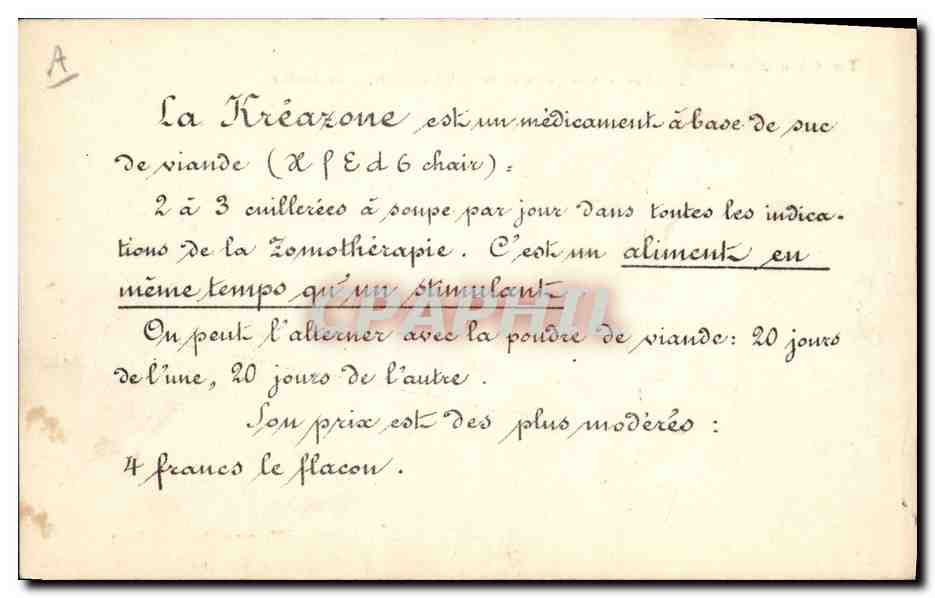 A
La Kréazone est un médicament à base de suc
de viande (X f E d 6 chair) :
2 à 3 cuillerées à soupe par jour dans toutes les indica-
tions de la Zomothérapie. C'est un aliment en
même temps qu'un stimulant
On peut l'alterner avec la poudre de viande : 20 jours
de l'une, 20 jours de l'autre.
Son prix est des plus modérés :
4 francs le flacon.
CPAPHIL